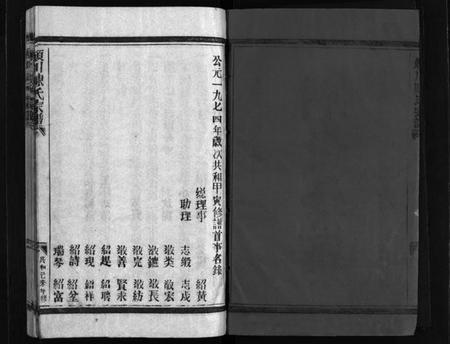 公元一九七四年歲次共和甲寅修譜首事名錄
總理事 紹黃
助理 志緞 志成
敬类 敬宏
敬鑣 敬長
敬完 敬紡
敬善 賢未
紹起 紹聘
紹現 紹祥
紹詩 紹全
瑞琴 紹富
潁川陳氏宗譜